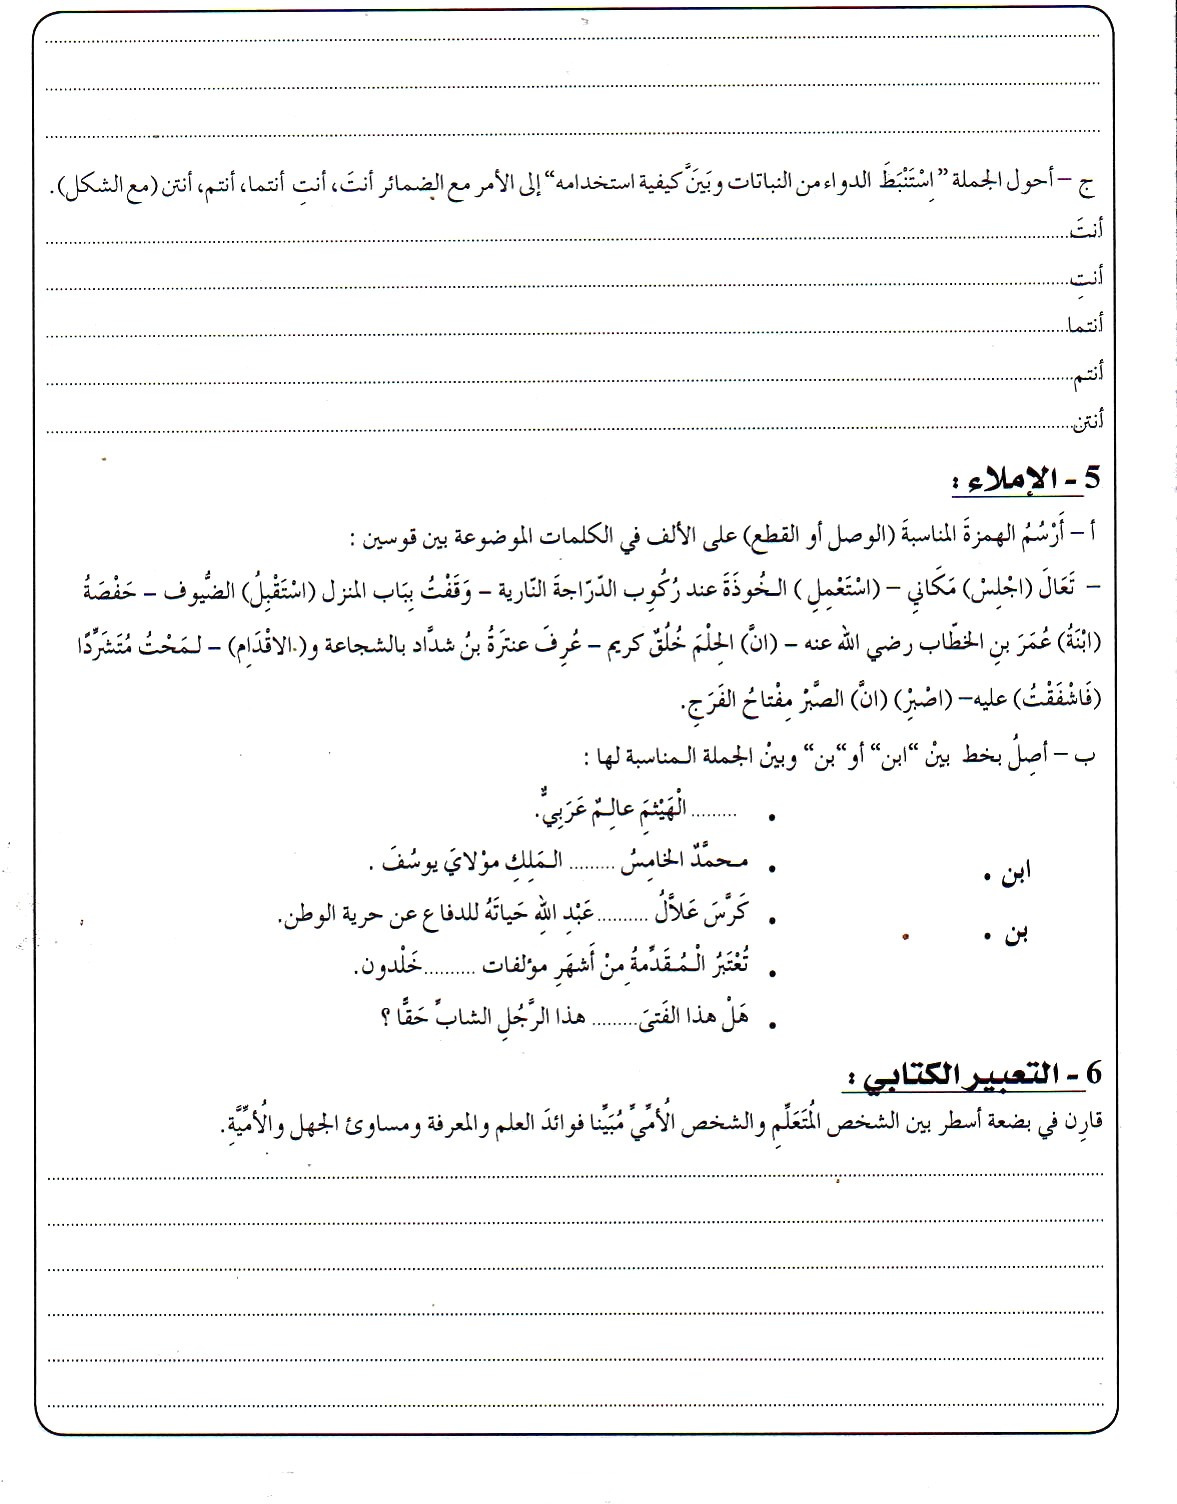 ج – أحول الجملة ”اِسْتَنْبَطَ الدواء من النباتات وبَيَنَّ كيفية استخدامه“ إلى الأمر مع الضمائر أنتَ، أنتِ أنتما، أنتم، أنتن (مع الشكل).
أنتَ
أنتِ
أنتما
أنتم
أنتن
5 - الإملاء :
أ – أَرْسُمُ الهمزةَ المناسبةَ (الوصل أو القطع) على الألف في الكلمات الموضوعة بين قوسين :
– تَعَالَ (اجْلِسْ) مَكَاني – (اسْتَعْمِلِ ) الـخُوذَةَ عند رُكُوبِ الدّرّاجةَ النّارية – وَقَفْتُ بِبَاب المنزل (اسْتَقْبِلُ) الضُّيوف – حَفْصَةُ
(ابْنَةُ) عُمَرَ بنِ الخطّاب رضي الله عنه – (انَّ) الحِلْمَ خُلُقٌ كريم – عُرِفَ عنترَةُ بنُ شدَّاد بالشجاعة و(الاقْدَامِ) – لـمَحْتُ مُتَشَرِّدًا
(فَاشْفَقْتُ) عليه– (اصْبِرْ) (انَّ) الصَّبْرْ مِفْتاحُ الفَرَجِ.
ب – أصِلُ بخط بينْ “ابن” أو“بن“ وبينْ الجملة الـمناسبة لها :
• ......... الْهَيْثمَ عالِـمٌ عَرَبِيٌّ.
• محمَّدٌ الخامِسُ ......... الـمَلِكِ موْلايَ يوسُفَ .
ابن •
• كَرَّسَ عَلاَّلُ ..........عَبْدِ اللهِ حَياتَهُ للدفاع عن حرية الوطن.
بن •
• تُعْتَبَرُ الْـمُـقَدِّمةُ مِنْ أَشهَرِ مؤلفات ..........خَلْدون.
• هَلْ هذا الفَتىَ......... هذا الرَّجُلِ الشابِّ حَقًّا ؟
6 - التعبير الكتابي :
قارِن في بضعة أسطر بين الشخص المُتَعَلِّمِ والشخص الُأمِّيِّ مُبَيِّنا فوائدَ العلم والمعرفة ومساوئ الجهل والُأمِّيَّةِ.